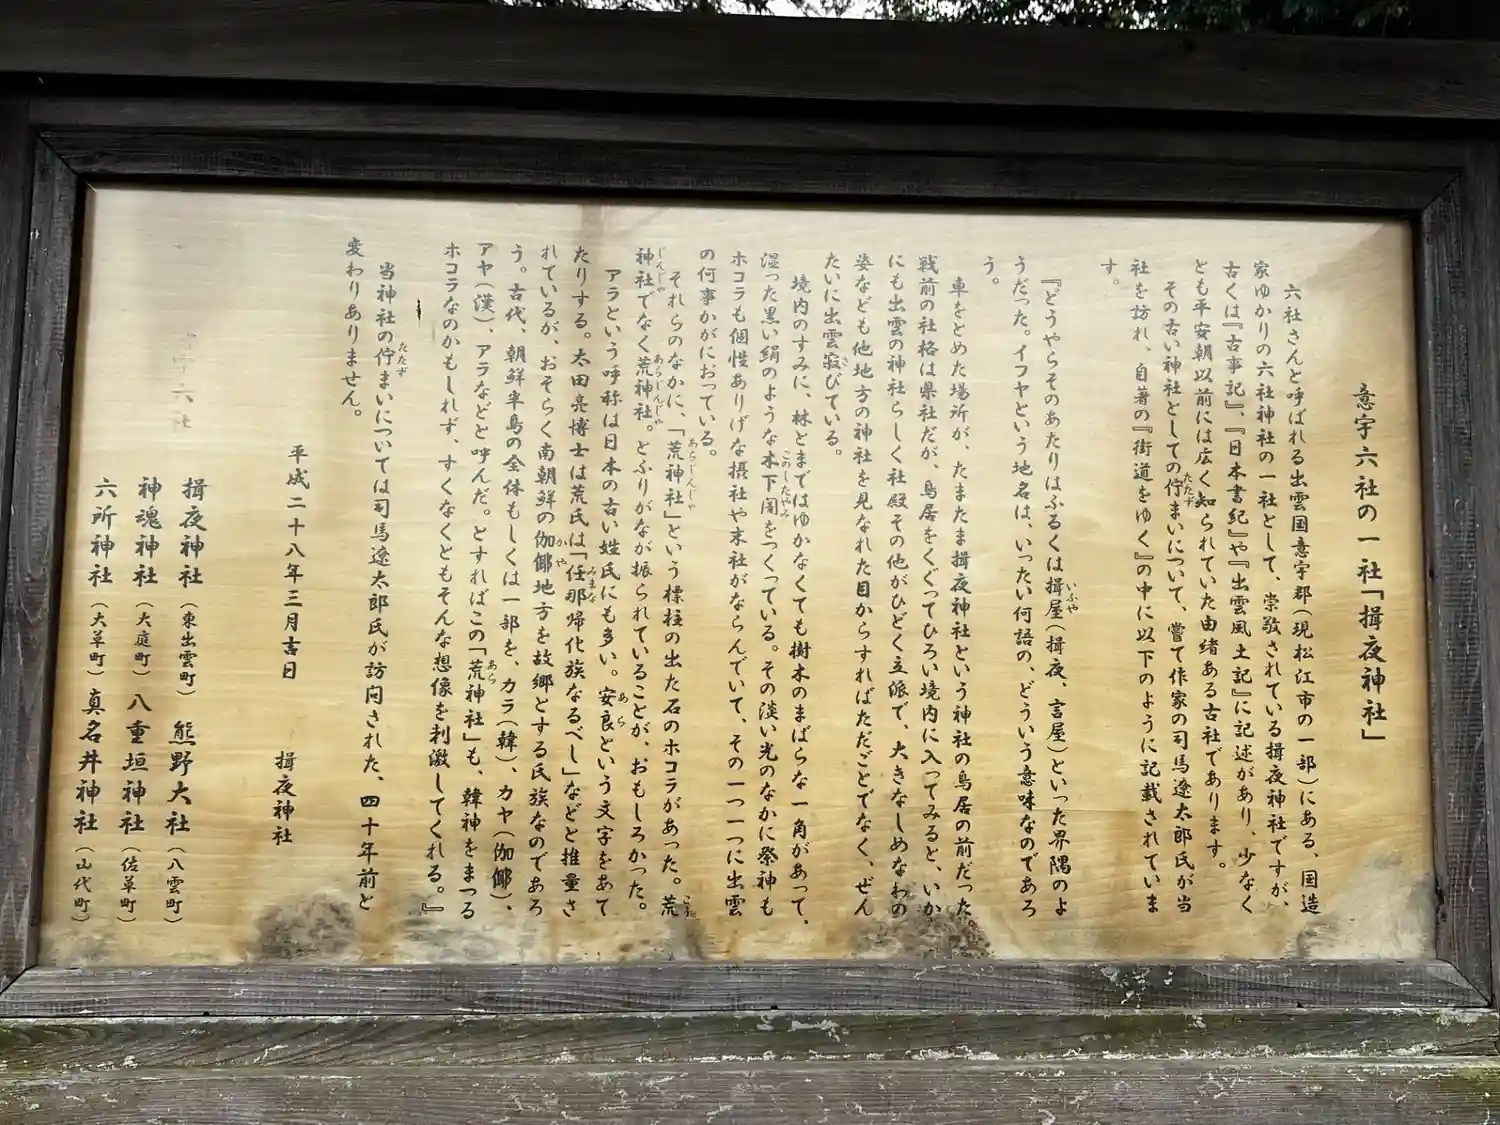 意宇六社の一社「揖夜神社」
六社さんと呼ばれる出雲国意宇郡(現松江市の一部)にある、国造
家ゆかりの六社神社の一社として、崇敬されている揖夜神社ですが、
古くは『古事記』、『日本書紀』や『出雲風土記』に記述があり、少なく
とも平安朝以前には広く知られていた由緒ある古社であります。
その古い神社としての佇まいについて、嘗て作家の司馬遼太郎氏が当
社を訪れ、自著の『街道をゆく』の中に以下のように記載されていま
す。
『どうやらそのあたりはふるくは揖屋(揖夜、言屋)といった界隈のよ
うだった。イフヤという地名は、いったい何語の、どういう意味なのであろ
う。
車をとめた場所が、たまたま揖夜神社という神社の鳥居の前だった。
戦前の社格は県社だが、鳥居をくぐってひろい境内に入ってみると、いか
にも出雲の神社らしく社殿その他がひどく立派で、大きなしめなわの
姿なども他地方の神社を見なれた目からすればただごとでなく、ぜん
たいに出雲寂びている。
境内のすみに、林とまではゆかなくても樹木のまばらな一角があって、
湿った黒い絹のような木下闇をつくっている。その淡い光のなかに祭神も
ホコラも個性ありげな摂社や末社がならんでいて、その一つ一つに出雲
の何事かがにおっている。
それらのなかに、「荒神社」という標柱の出た石のホコラがあった。荒
神社でなく荒神社。とふりがなが振られていることが、おもしろかった。
アラという呼称は日本の古い姓氏にも多い。安良という文字をあて
たりする。太田亮博士は荒氏は「任那帰化族なるべし」などと推量さ
れているが、おそらく南朝鮮の伽倻地方を故郷とする氏族なのであろ
う。古代、朝鮮半島の全体もしくは一部を、カラ(韓)、カヤ(伽倻)、
アヤ(漢)、アラなどと呼んだ。とすればこの「荒神社」も、韓神をまつる
ホコラなのかもしれず、すくなくともそんな想像を刺激してくれる。』
当神社の佇まいについては司馬遼太郎氏が訪問された、四十年前と
変わりありません。
平成二十八年三月吉日 揖夜神社
宇六社
揖夜神社(東出雲町) 熊野大社(八雲町)
神魂神社(大庭町) 八重垣神社(佐草町)
六所神社(大草町) 真名井神社(山代町)